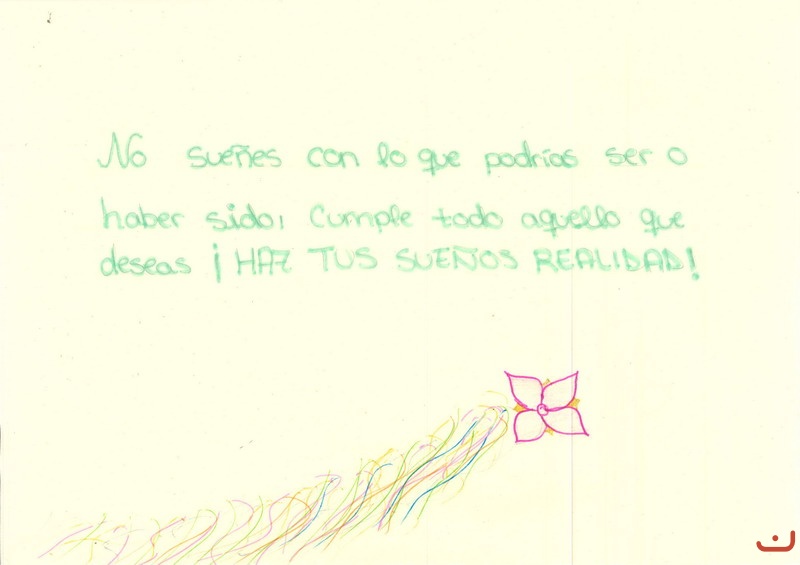 No sueñes con lo que podrías ser o
haber sido, Cumple todo aquello que
deseas ¡HAZ TUS SUEÑOS REALIDAD!